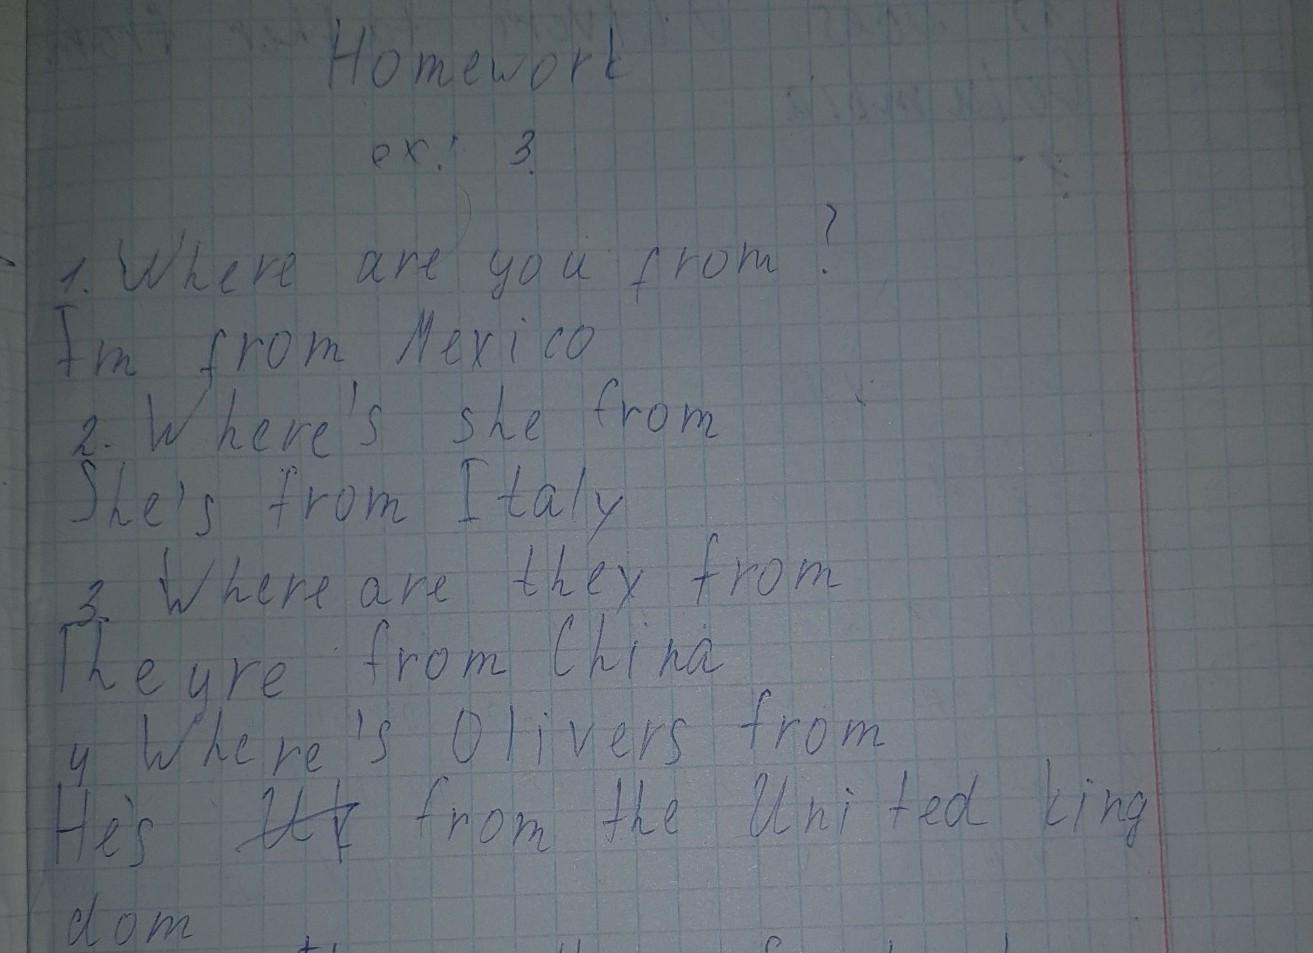 Homework
ex: 3
1. Where are you from?
Im from Mexico
2. Where's she from
She's from Italy
3. Where are they from
Theyre from China
4 Where's Olivers from
He's from the United king
dom